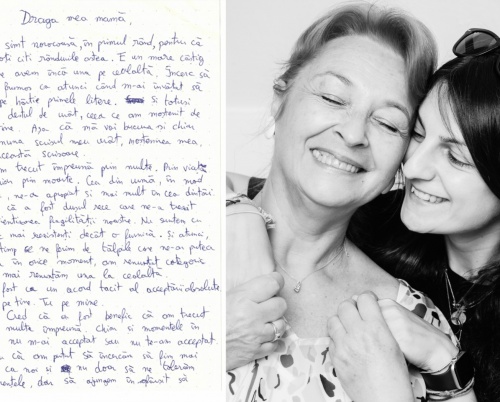 Draga mea mamă,
simt norocoasă, în primul rând, pentru că
poți citi rândurile astea. E un mare câștig
avem încă una pe cealaltă. Încerc să
frumos ca atunci când m-ai învățat să
pe hârtie primele litere. Și totuși
destul de urât, ceea ce am moștenit de
tine. Așa că mă voi bucura și chiar
scrisul meu urât, moștenirea mea,
această scrisoare.
trecut împreună prin multe. Prin viață
prin moarte. Cea din urmă, în mod
ne-a apropiat și mai mult în cea dintâi.
că a fost dușul rece care ne-a trezit
fragilității noastre. Nu suntem cu
mai rezistenți decât o furnică. Și atunci,
timp să ne ferim de tălpile care ne-ar putea
în orice moment, am renunțat categoric
mai renunțăm una la cealaltă.
fost ca un acord tacit al acceptării absolute
pe tine. Tu pe mine.
Cred că a fost benefic că am trecut
multe împreună. Chiar și momentele în
nu m-ai acceptat sau nu te-am acceptat.
că am putut să încercăm să fim mai
ca noi și nu doar să ne tolerăm
dar să ajungem în sfârșit să